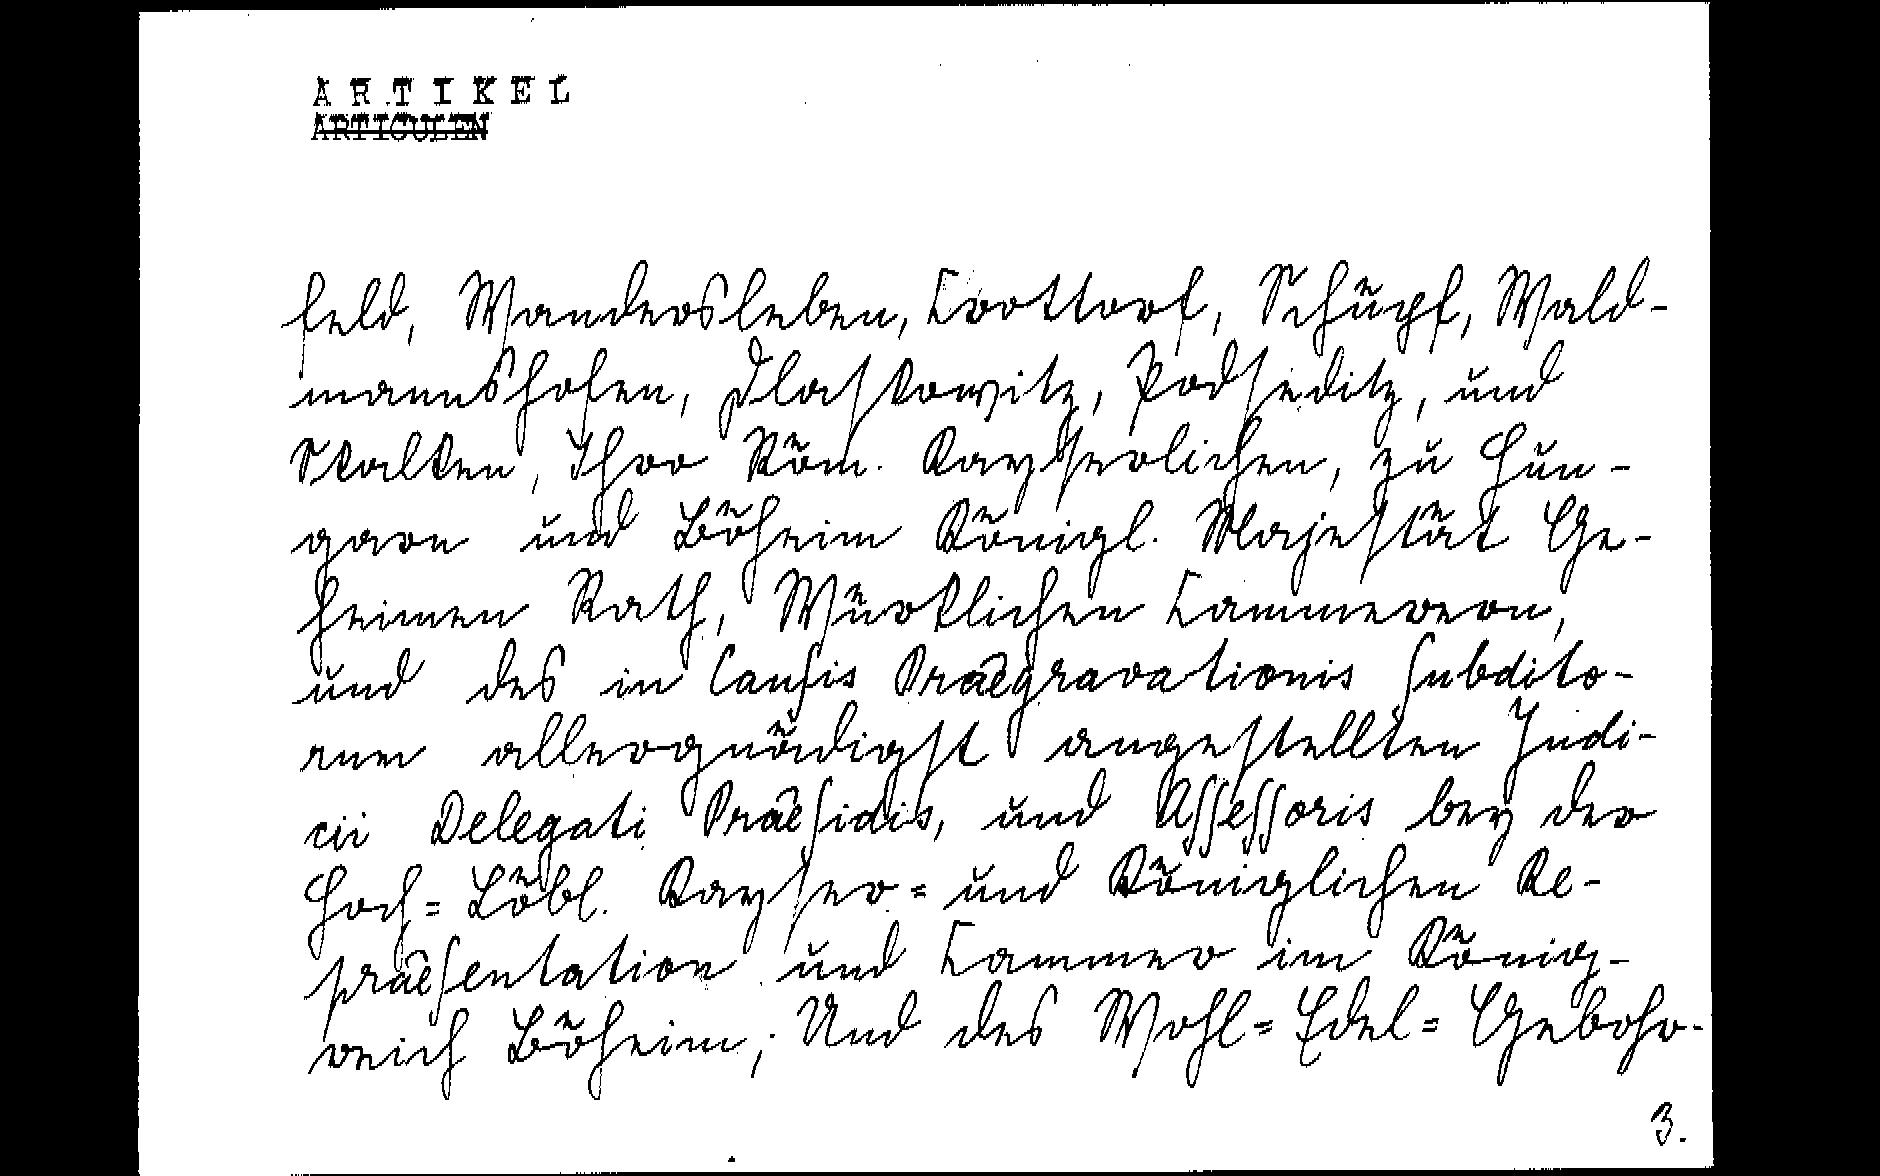 ARTIKEL
ARTICULEN
feld, Wandersleben, Crottorf, Schüpf, Wald-
mannshofen, Dlaskowitz, Podseditz, und
Skalken, Ihro Röm. Kayserlichen, zu Hun-
garn und Böheim Königl. Majestät Ge-
heimen Rath, Würklichen Cammerern,
und des in Causis Praegravationis Subdito-
rum allergnädigst angestellten Judi-
cii Delegati Praesidis, und Assessoris bey der
Hoch= Löbl. Kayser= und Königlichen Re-
praesentation und Cammer im König-
reich Böheim; Und des Wohl= Edel= Gebohr-
3.